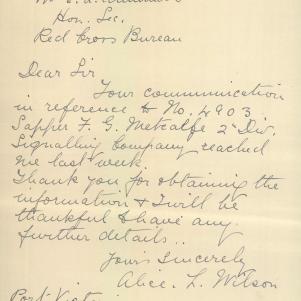 Hon. Sec.
Red Cross Bureau
Dear Sir
Your communication
in reference to No. 4903
Sapper F. G. Metcalfe 2nd Div.
Signalling Company reached
me last week.
Thank you for obtaining the
information & I will be
thankful to have any
further details..
Yours Sincerely
Alice. L. Wilson
Port